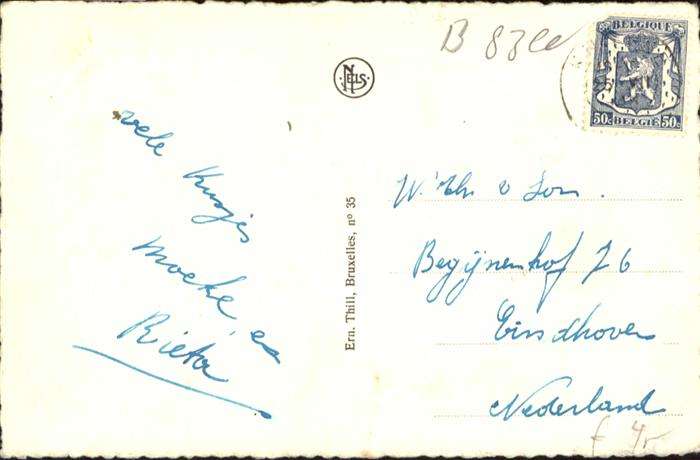 B 83
BELGIQUE
50c BELGIË 50c
NELS
vele
Kusjes
Moeke en
Rieta
Ern. Thill, Bruxelles, nº 35
Begijnenhof 26
Eindhoven
Nederland